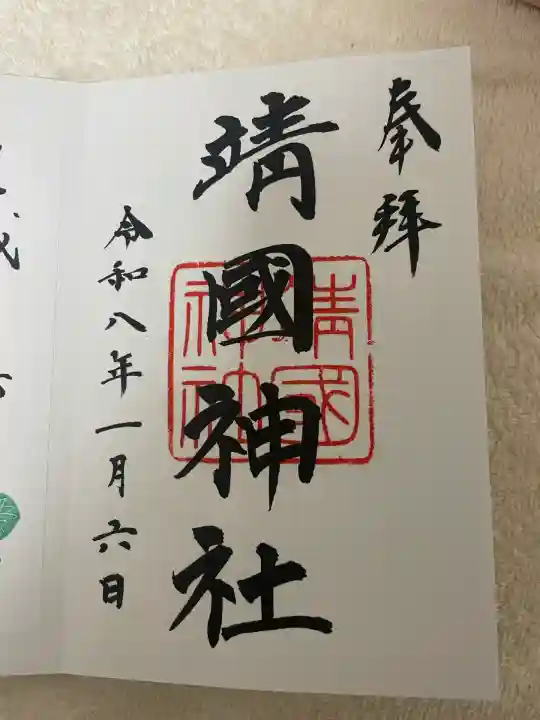 奉拝
靖國神社
靖國
神社
令和八年一月六日